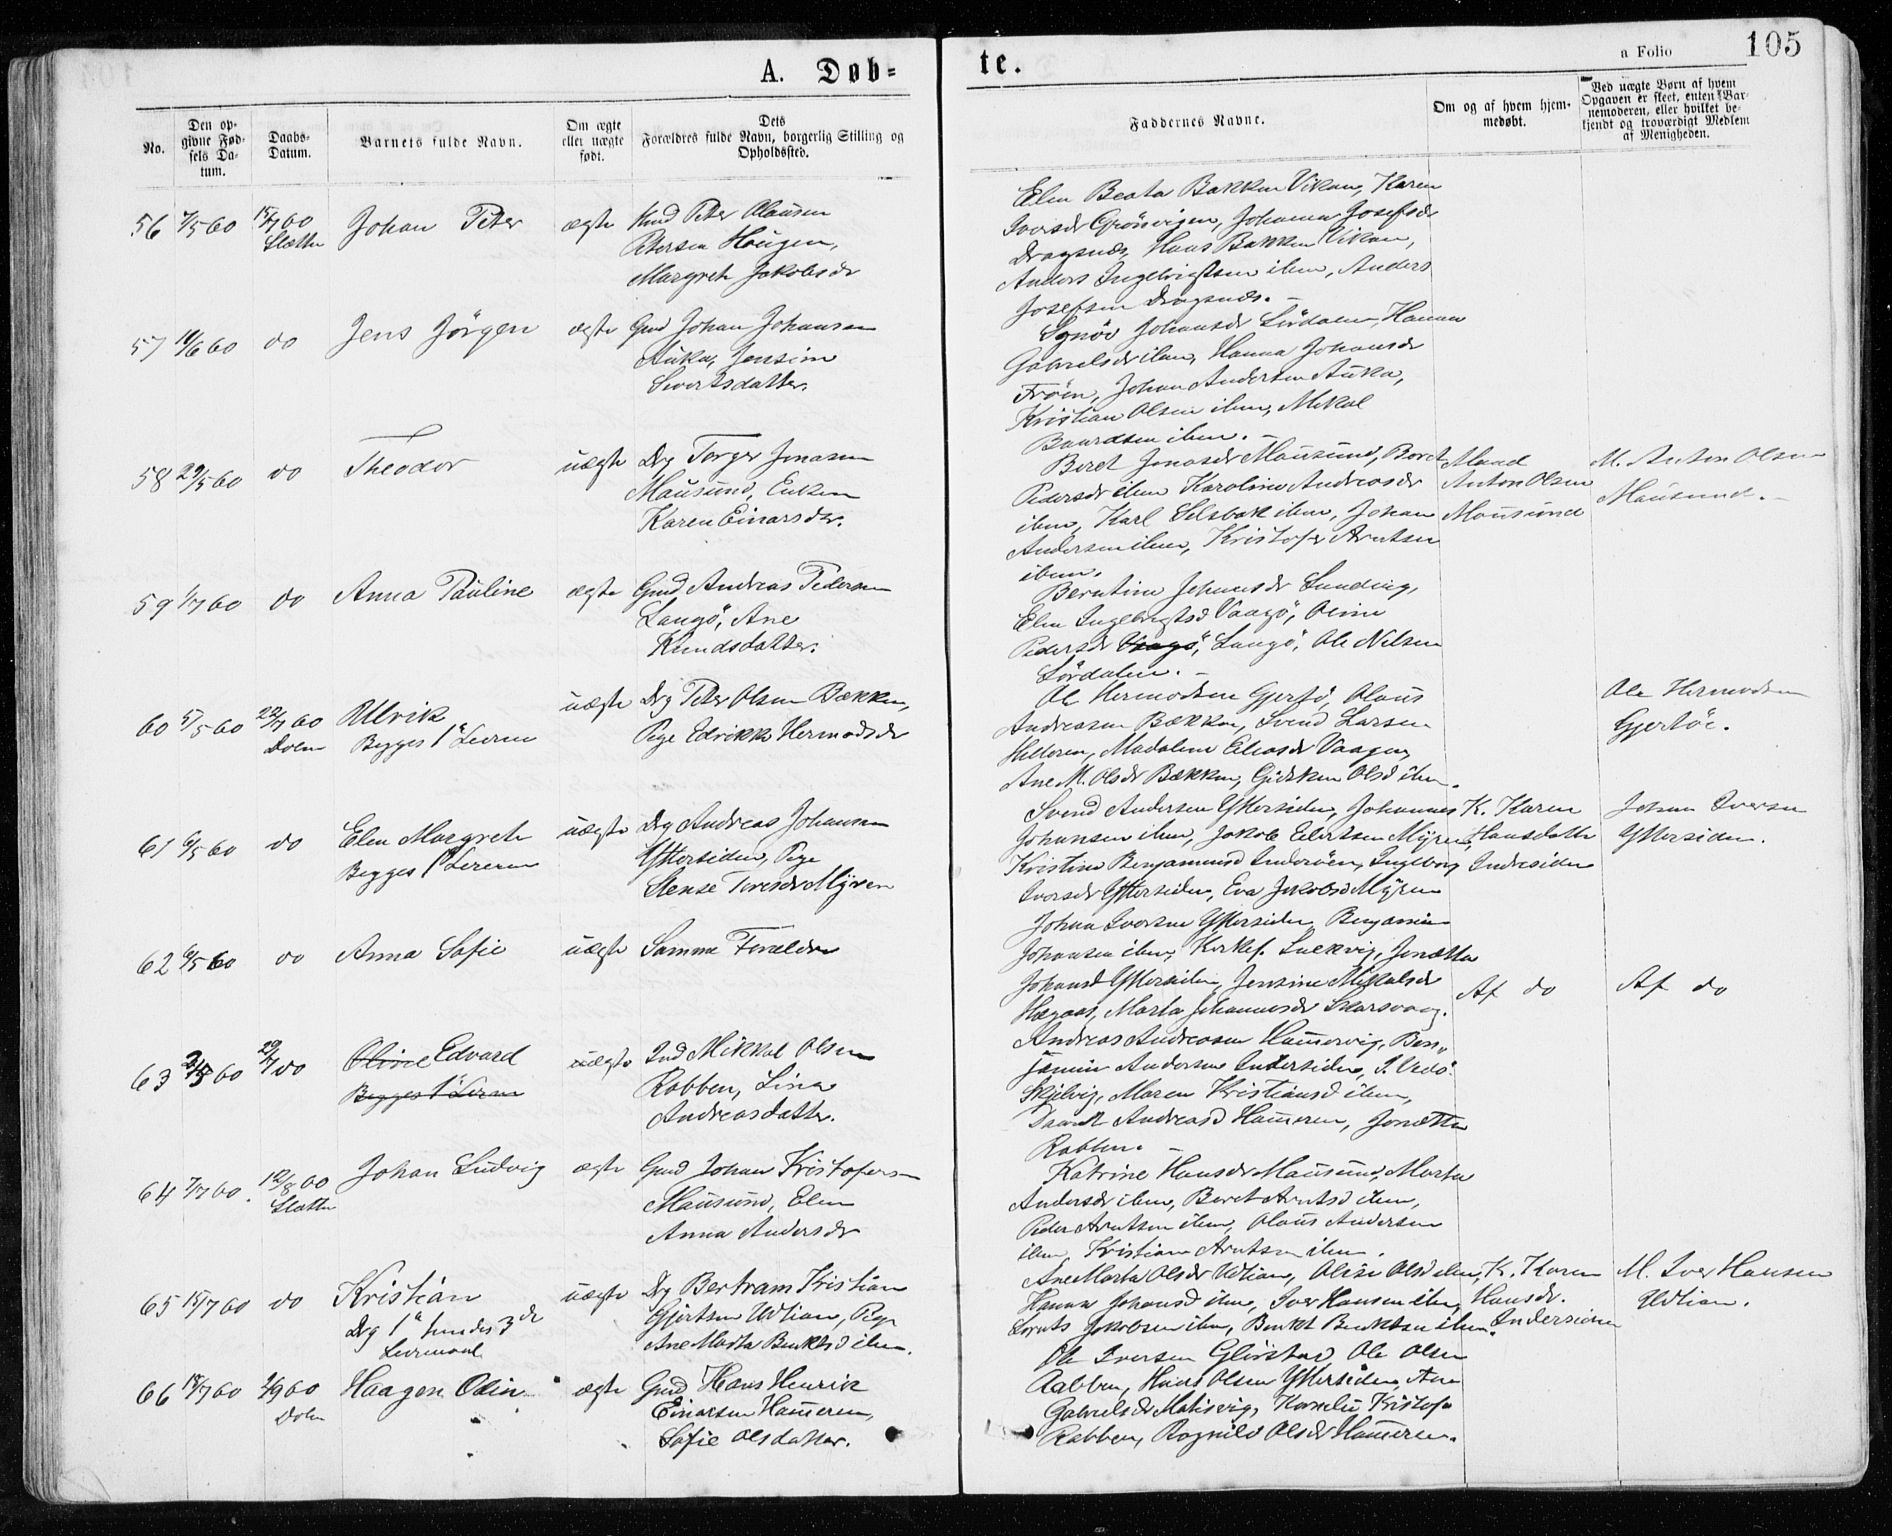 A. Døb=
te.
a Folio 105
No.
Den op-
givne Fød-
sels Da-
tum.
Daabs-
Datum.
Barnets fulde Navn.
Om ægte
eller uægte
født.
Dets
Forældres fulde Navn, borgerlig Stilling og
Opholdssted.
Faddernes Navne.
Om og af hvem hjem-
medøbt.
Ved uægte Børn af hvem
Opgaven er skeet, enten Bar-
nemoderen, eller hvilket be-
kjendt og troværdigt Medlem
af Menigheden.
56 7/5 60 15/7 60 Johan Peter ægte Peter Olausen
Slætten Petersen Haugen,
Margreth Jakobsdr
Elen Beata Bakken Vikan, Karen
Iversdr Grönvigen, Johanna Josefsdr
Dragsnæs, Hans Bakken Vikan,
Anders Ingebrigtsen ibm, Anders
Josefsen Dragsnæs. -
57 10/6 60 do Jens Jörgen ægte Gmd Johan Johansen
Auka, Jensine
Sivertsdatter.
Synöv Johansdr Sördalen, Hanna
Gabrielsdr ibm, Hanna Johansdr
Fröen, Johan Andersen Auka,
Kristian Olsen ibm, Mikal
Baardsen ibm. -
58 29/5 60 do Theodor uægte Dg Torger Jonasen
Mausund, Enken
Karen Einarsdr.
Beret Jonasdr Mausund, Beret
Pedersdr ibm Karoline Andreasdr
ibm, Karl Selsbak ibm, Johan
Andersen ibm, Kristofer Arntsen
ibm.
Maad
Anton Olsen
Mausund
M. Anton Olsen
Mausund. -
59 1/7 60 do Anna Pauline ægte Gmd Andreas Pedersen
Langö, Ane
Knudsdatter.
Berntine Johansdr Sunding,
Elen Ingebrigtsd Vaagö, Oline
Pedersdr Vaagö, Langö, Ole Nelsen
Sördalen. -
60 5/5 60 22/7 60 Ulrik uægte Dg Peter Olsen Bækken,
Dolm Begges 1ste Leierm Pige Edrikke Hermodsdr
Ole Hermodsen Gjertö, Olaus
Andreasen Bækken, Svend Larsen
Hilleren, Madalena Eliasdr Vaagen,
Ane M. Olsdr Bækken, Gjertken Olsd ibm.
Ole Hermodsen
Gjertöe.
61 6/5 60 do Elen Margreth uægte Dg Andreas Johansen
Begges 1ste Leierm Yttersiden, Pige
Stense Toresdr Myren
Svend Andersen Yttersiden, Johannes
Johansen ibm, Jakob Edertsen Myren,
Kristine Benjaminsd Inderöen, Ingeborg
Iversdr Yttersiden, Eva Jakobsd Myren
K. Karen
Hansdatter
Indresiden
Johan Iversen
Yttersiden.
62 6/5 60 do Anna Sofie uægte Samme Forældre
Johan Iversen Yttersiden, Benjamin
Johansen ibm, Kirkes. Sulkvig, Jonetta
Johansd Yttersiden, Jensine Mikalsdr
Hægaas, Marta Johannesdr Skarsvaag.
Af do
Af do
63 60 29/7 do Oline Edvard uægte Ind Mikkel Olsen
Begges 1ste Leierm Rabben, Lina
Andreasdatter.
Andreas Andreasen Hamervig, Ben„
jamin Andersen Indersiden, P. Vedö
Skjelvig, Maren Kristiansd ibm,
Andreasd Hameren, Jonetta
Rabben. -
64 7/7 60. 12/8 60 Johan Ludvig ægte Gmd Johan Kristofers-
Slætten Mausund, Elen
Anna Andersdr
Katrine Hansdr Mausund, Marta
Andersdr ibm, Beret Arntsd ibm,
Peder Arntsen ibm, Olaus Andersen
ibm, Kristian Arntsen ibm.
65 15/7 60 do Kristian uægte Dg Bertram Kristian
Dg 1ste hendes 3de Gjertsen Udtian, Pige
Leiermaal Ane Marta Benktsd ibm.
Ane Marta Olsdr Udtian, Olise Olsd ibm,
Hanna Johansd ibm, Iver Hansen ibm,
Lornts Jakobsen ibm, Benkt Benktsen ibm.
K. Karen
Hansdr.
Indersiden
M. Iver Hansen
Udtian.
66 18/7 60 2/9 60 Haagen Odin. ægte Gmd Hans Henrik
Dolm Einarsen Hameren,
Sofie Olsdatter.
Ole Iversen Glörstad Ole Olsen
Rabben, Hans Olsen Yttersiden, Ane
Gabrielsdr Melsevig, Kornelie Kristofa
Rabben, Ragnild Olsdr Hameren.